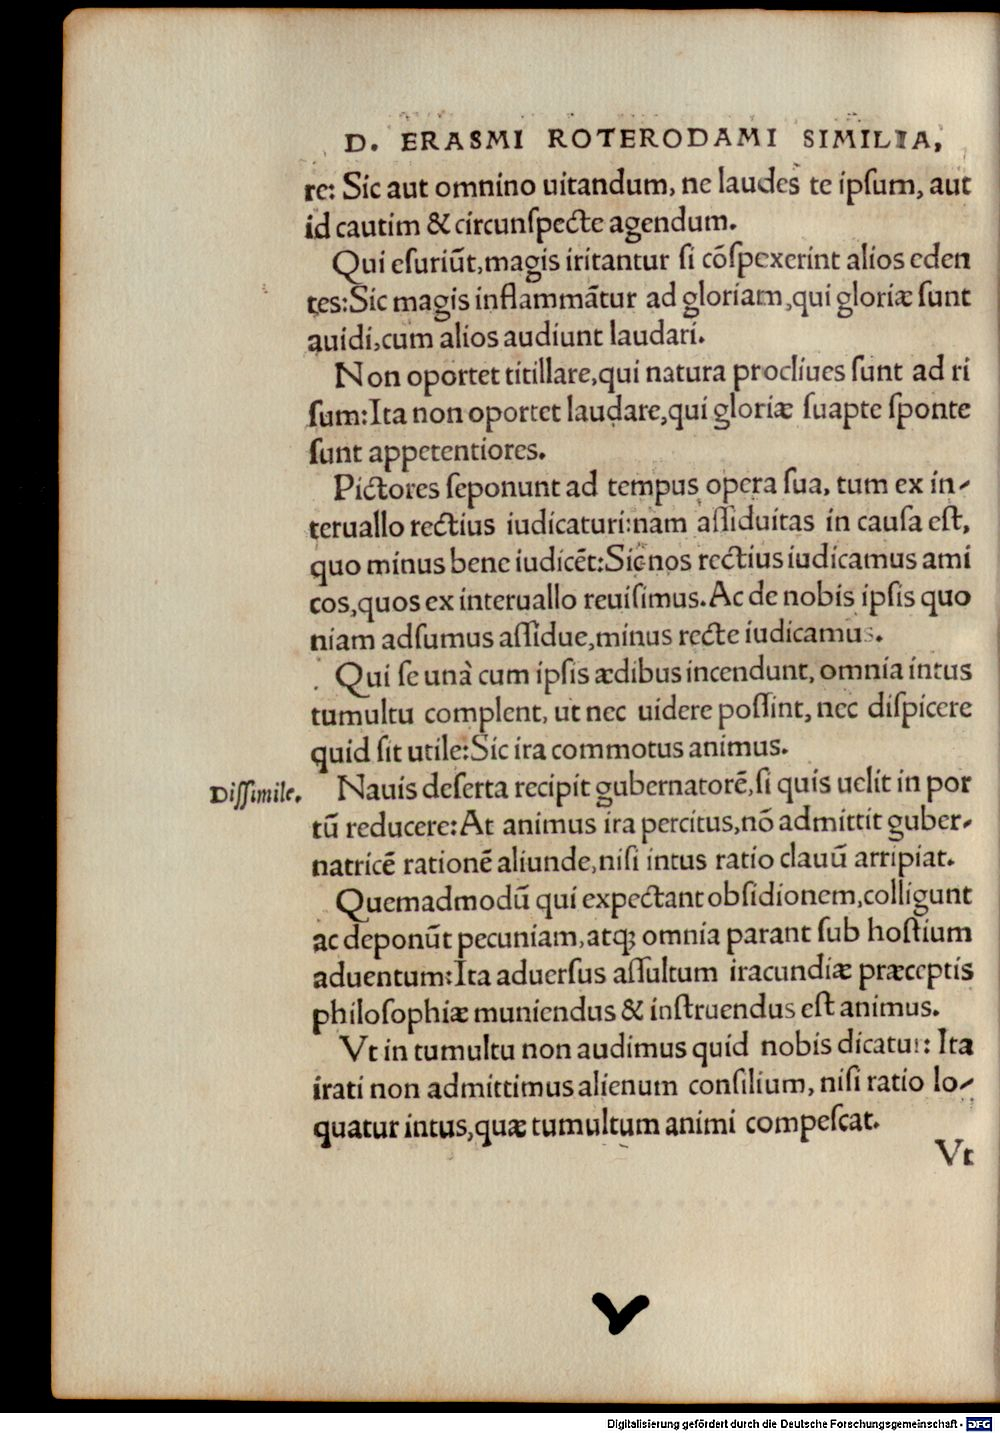 D. ERASMI ROTERODAMI SIMILIA,
re: Sic aut omnino uitandum, ne laudes te ipſum, aut
id cautim & circunſpecte agendum.
Qui eſuriũt, magis iritantur ſi cõſpexerint alios eden
tes: Sic magis inflammãtur ad gloriam, qui gloriæ ſunt
auidi, cum alios audiunt laudari.
Non oportet titillare, qui natura procliues ſunt ad ri
ſum: Ita non oportet laudare, qui gloriæ ſuapte ſponte
ſunt appetentiores.
Pictores ſeponunt ad tempus opera ſua, tum ex in-
teruallo rectius iudicaturi: nam aſſiduitas in cauſa eſt,
quo minus bene iudicẽt: Sic nos rectius iudicamus ami
cos, quos ex interuallo reuiſimus. Ac de nobis ipſis quo
niam adſumus aſſidue, minus recte iudicamus.
Qui ſe unà cum ipſis ædibus incendunt, omnia intus
tumultu complent, ut nec uidere poſſint, nec diſpicere
quid ſit utile: Sic ira commotus animus.
Diſſimile.
Nauis deſerta recipit gubernatorẽ, ſi quis uelit in por
tũ reducere: At animus ira percitus, nõ admittit guber-
natricẽ rationẽ aliunde, niſi intus ratio clauũ arripiat.
Quemadmodũ qui expectant obſidionem, colligunt
ac deponũt pecuniam, atq; omnia parant ſub hoſtium
aduentum: Ita aduerſus aſſultum iracundiæ præceptis
philoſophiæ muniendus & inſtruendus eſt animus.
Vt in tumultu non audimus quid nobis dicatur: Ita
irati non admittimus alienum conſilium, niſi ratio lo-
quatur intus, quæ tumultum animi compeſcat.
Vt
Digitalisierung gefördert durch die Deutsche Forschungsgemeinschaft - DFG